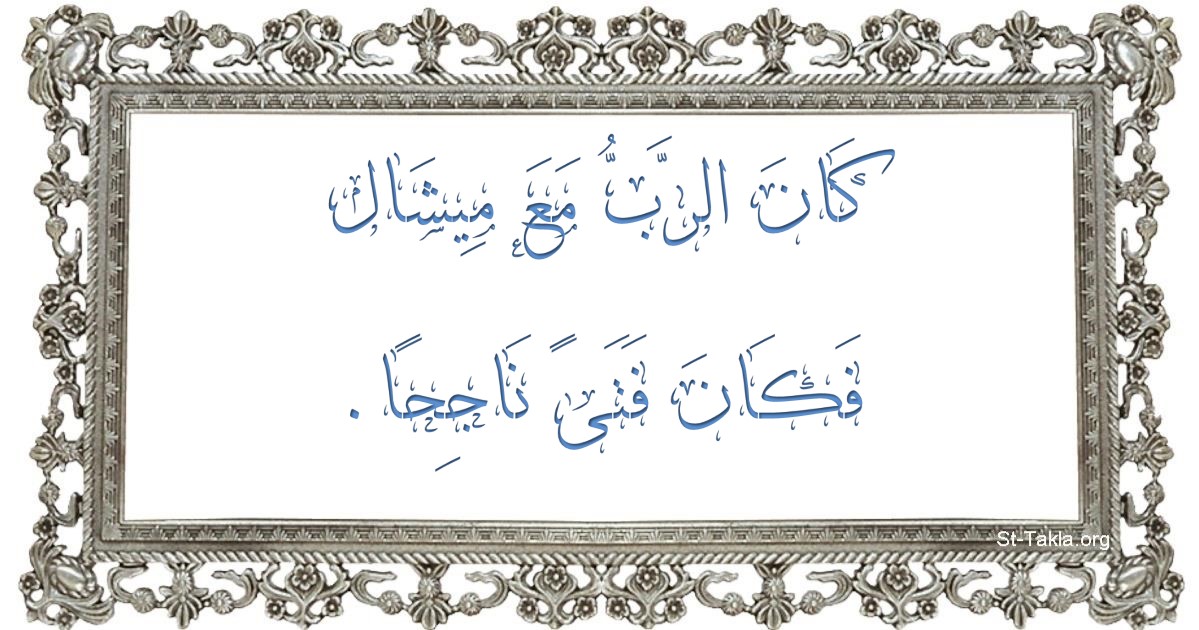 كَانَ الرَّبُّ مَعَ مِيشَال
فَكَانَ فَتَىً نَاجِحًا.
St-Takla.org